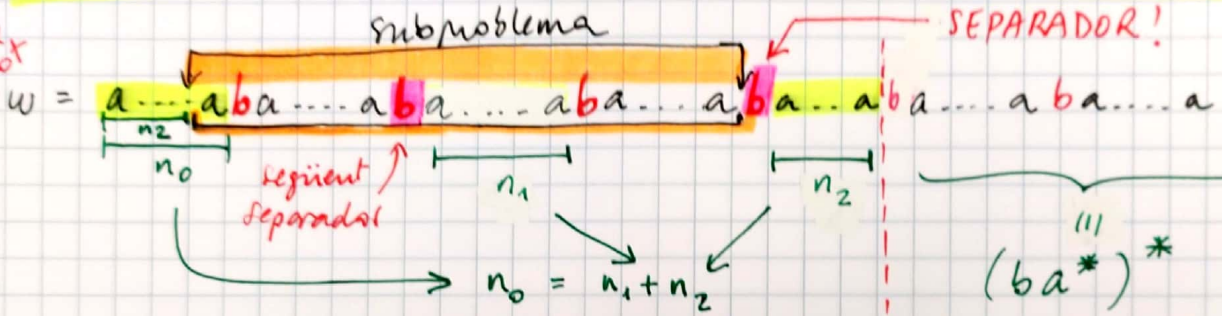 subproblema
SEPARADOR!
w = a....aba....aba....aba...aba..aba....aba....a
n2
n0
següent
separador
n1
n2
n0 = n1 + n2
(ba*)*